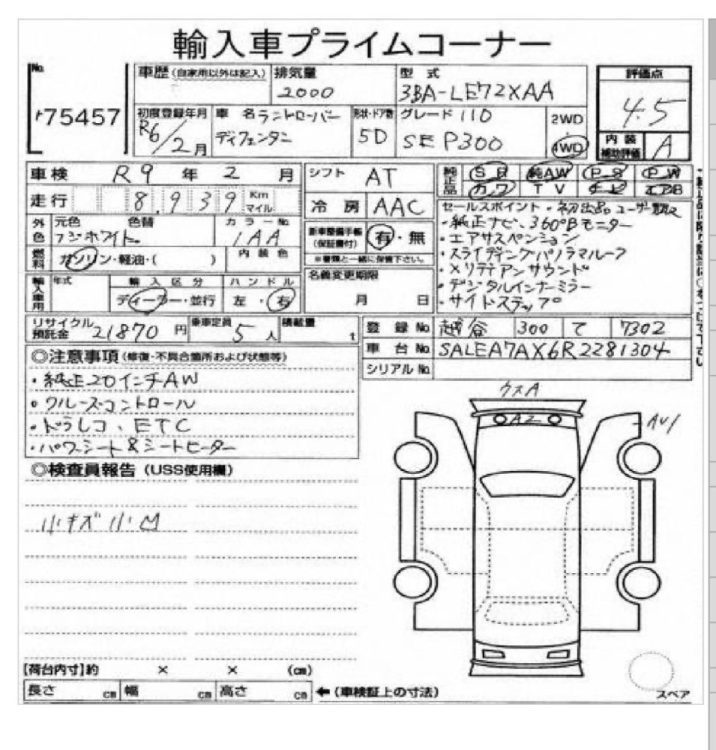 輸入車プライムコーナー
No.
75457
車歴 (自家用以外は記入)
排気量
2000
型式
3BA-LE72XAA
評価点
4.5
初度登録年月
R6/2月
車名
ランドローバー
ディフェンダー
形状・ドア数
5D
グレード
110
SE P300
2WD
4WD
内装
補助評価
A
車検
R9年2月
シフト
AT
純正品
SR
純AW
PS
PW
カワ
TV
ナビ
エアB
走行
8,939
Km
マイル
冷房
AAC
セールスポイント・初出品ユーザー買取
・純正ナビ、360°Bモニター
・エアサスペンション
・スライディングパノラマルーフ
・メリディアンサウンド
・デジタルインナーミラー
・サイドステップ
外色
元色
色替
カラーNo
フジホワイト
1AA
新車整備手帳
(保証書付)
有・無
※書類と一緒に保管下さい。
燃料
ガソリン・軽油・( )
内装色
名義変更期限
月 日
輸入車用
年式
輸入区分
ハンドル
ディーラー・並行
左・右
リサイクル
預託金
21870円
乗車定員
5人
積載量
t
登録No
越谷 300 て 7302
車台No
SALEA7AX6R2281304
シリアルNo
◎注意事項 (修復・不具合箇所および状態等)
・純正20インチAW
・クルーズコントロール
・ドラレコ、ETC
・パワーシート&シートヒーター
◎検査員報告 (USS使用欄)
小キズ小凹
ウスA
A2
AU1
【荷台内寸】約 × × (cm)
長さ cm 幅 cm 高さ cm ←(車検証上の寸法)
スペア